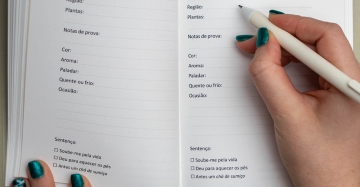 Região:
Plantas:
Notas de prova:
Cor:
Aroma:
Paladar:
Quente ou frio:
Ocasião:
Sentença:
☐ Soube-me pela vida
☐ Deu para aquecer os pés
☐ Antes um chá de sumiço
Região:
Plantas:
Notas de prova:
Cor:
Aroma:
Paladar:
Quente ou frio:
Ocasião:
Sentença:
☐ Soube-me pela vida
☐ Deu para aquecer os pés
☐ Antes um chá de sumiço